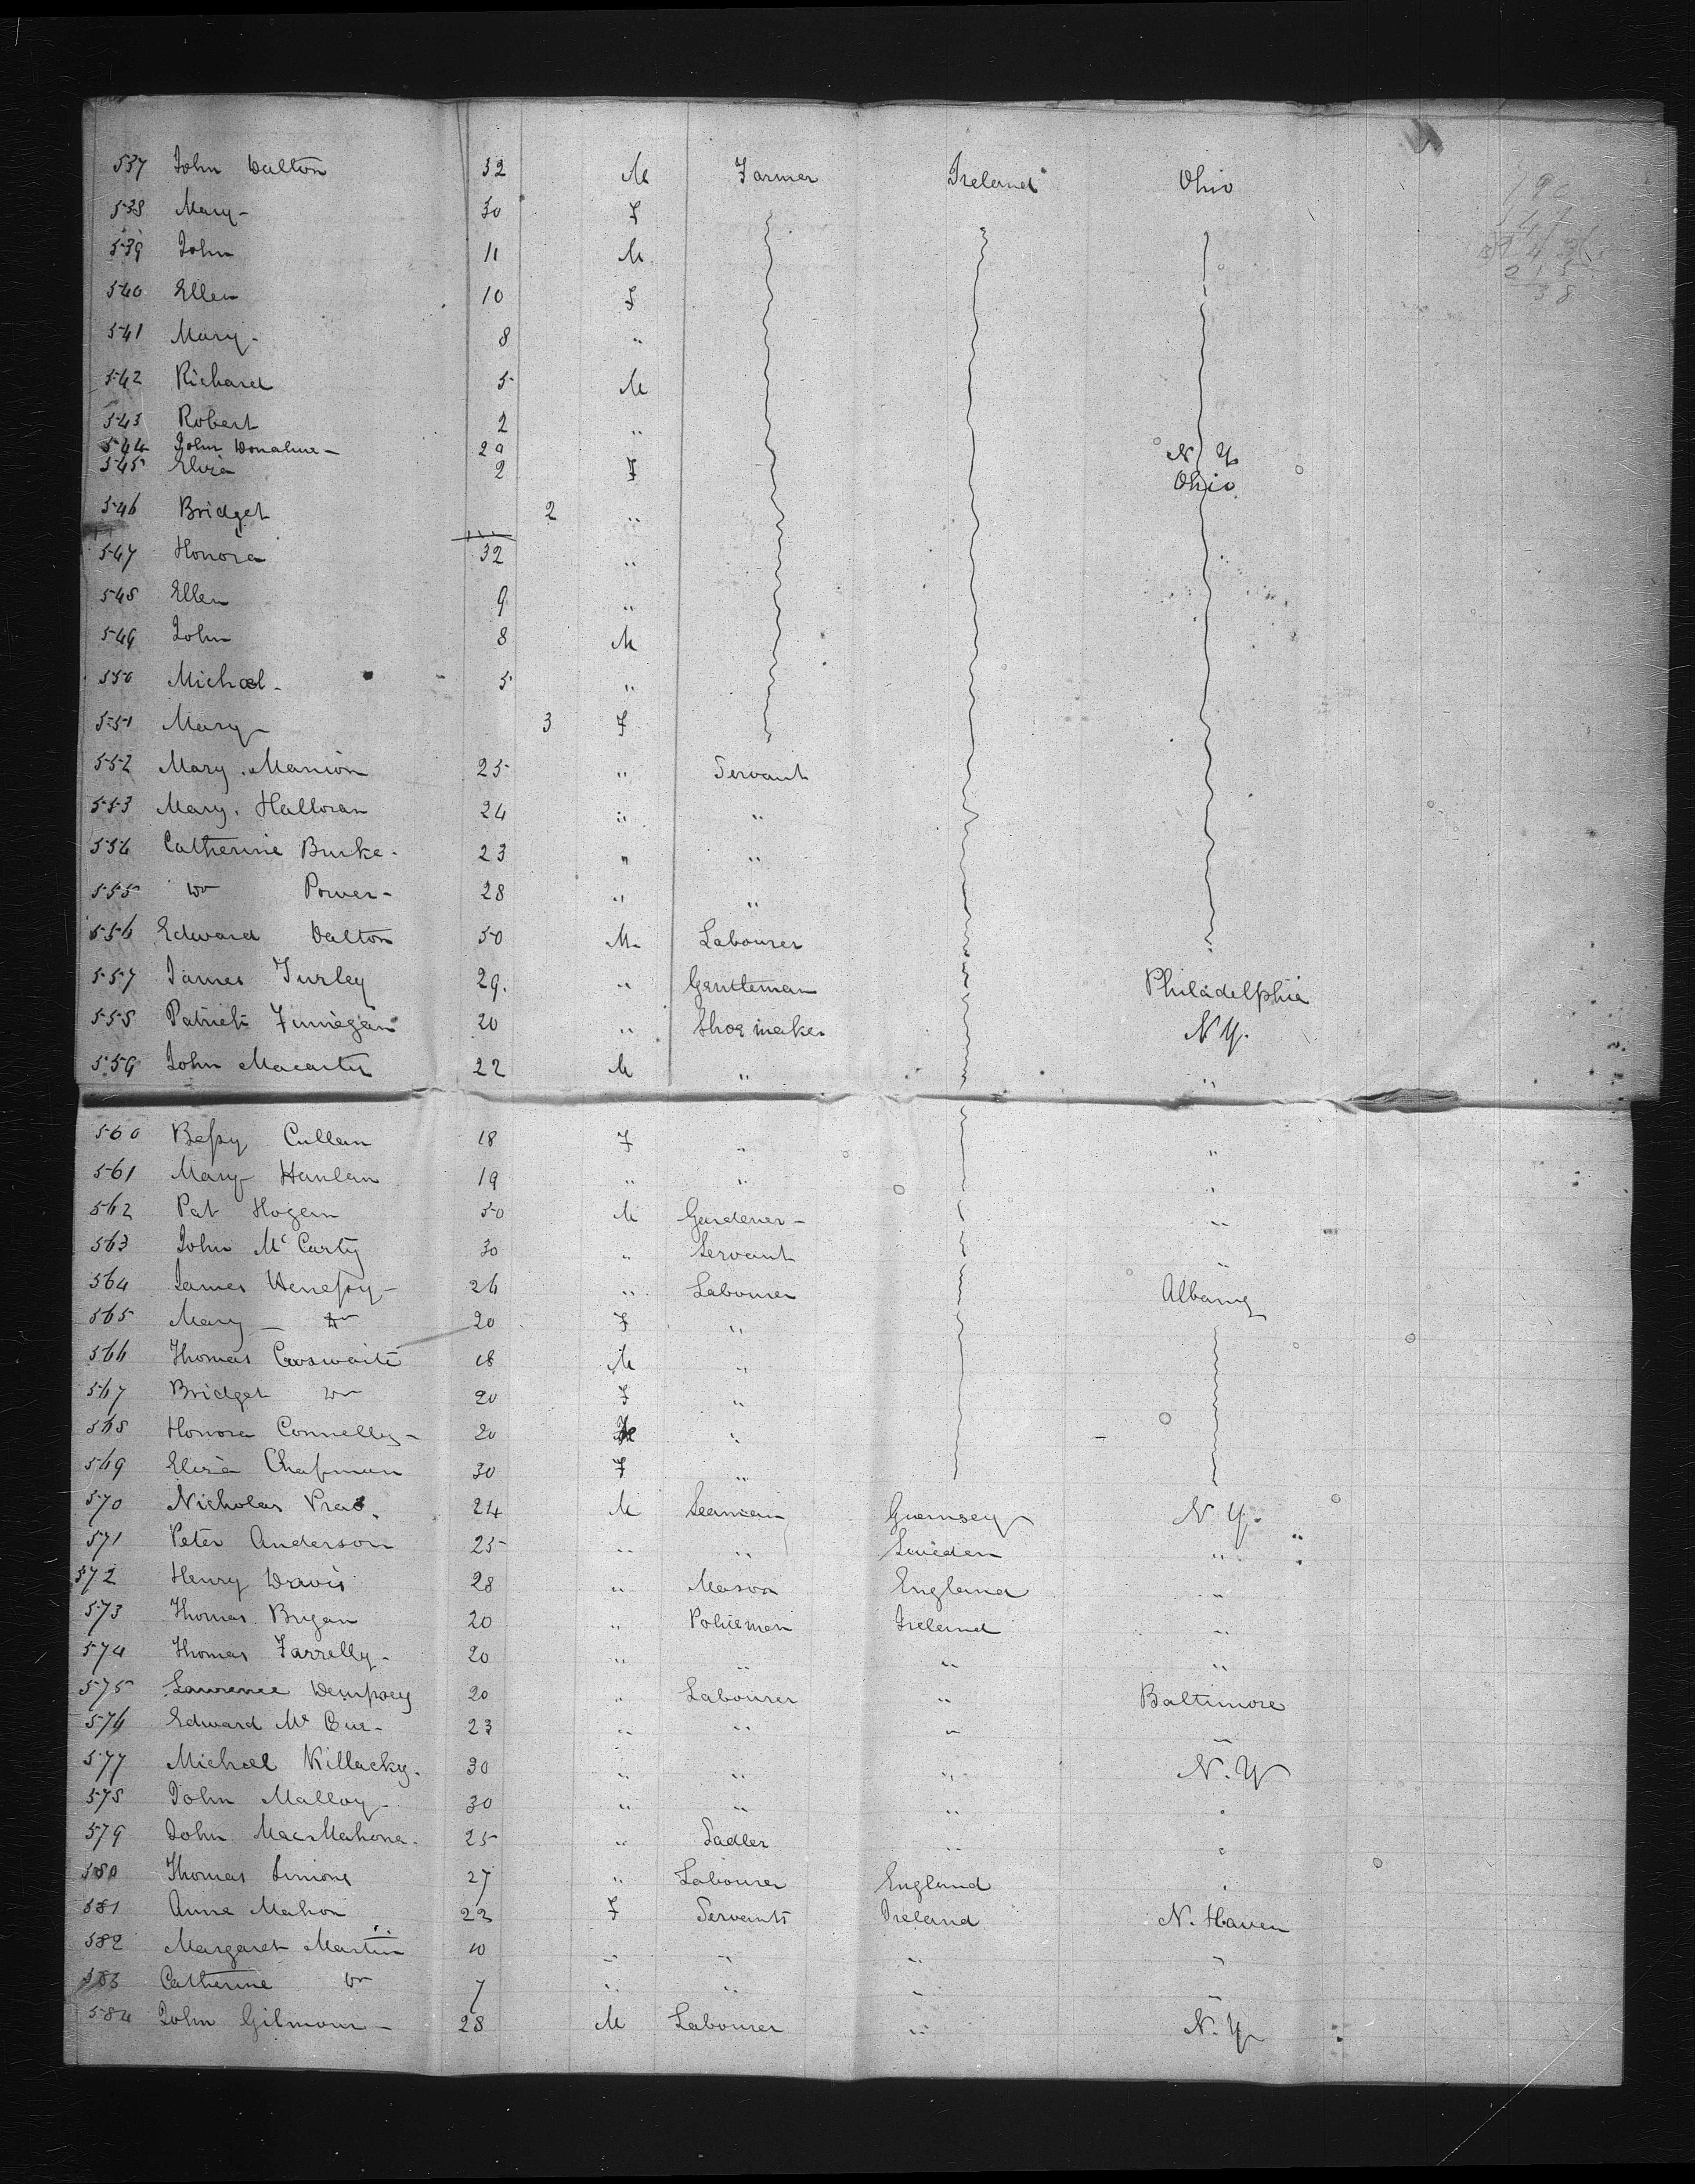 537 John Dalton 32 M Farmer Ireland Ohio
538 Mary- 30 F
539 John 11 M
540 Ellen 10 F
541 Mary- 8 "
542 Richard 5 M
543 Robert 2 "
544 John Donahue- 29 N Y
545 Eliza 2 F Ohio
546 Bridget 2 "
547 Honora 32 "
548 Ellen 9 "
549 John 8 M
550 Michael- 5 "
551 Mary 3 F
552 Mary Manion 25 " Servant
553 Mary Halloran 24 " "
554 Catherine Burke- 23 " "
555 Do Power- 28 " "
556 Edward Dalton 50 M Labourer
557 James Turley 29. " Gentleman Philadelphia
558 Patrick Finnegan 20 " Shoe maker N Y.
559 John Macarter 22 M " "
560 Bessy Cullen 18 F " "
561 Mary Hanlan 19 " " "
562 Pat Hogan 50 M Gardener- "
563 John McCarty 30 " Servant "
564 James Henessy- 26 " Labourer Albany
565 Mary - Do 20 F "
566 Thomas Coswaite 18 M "
567 Bridget Do 20 F "
568 Honora Connelly- 20 "
569 Eliza Chapman 30 F "
570 Nicholas 24 M Seaman Guernsey N Y.
571 Peter Anderson 25 " " Sweden "
572 Henry Davis 28 " Mason England "
573 Thomas Bryan 20 " Policeman Ireland "
574 Thomas Farrelly- 20 " " " "
575 Lawrence Dempsey 20 " Labourer " Baltimore
576 Edward Mc Cue- 23 " " " "
577 Michael Killacky. 30 " " " N. Y
578 John Malloy- 30 " " " "
579 John MacMahone. 25 " Sadler " "
580 Thomas Simons 27 " Labourer England "
581 Anne Mahon 22 F Servants Ireland N. Haven
582 Margaret Martin 10 " " " "
583 Catherine Do 7 " " " "
584 John Gilmour- 28 M Labourer " N. Y